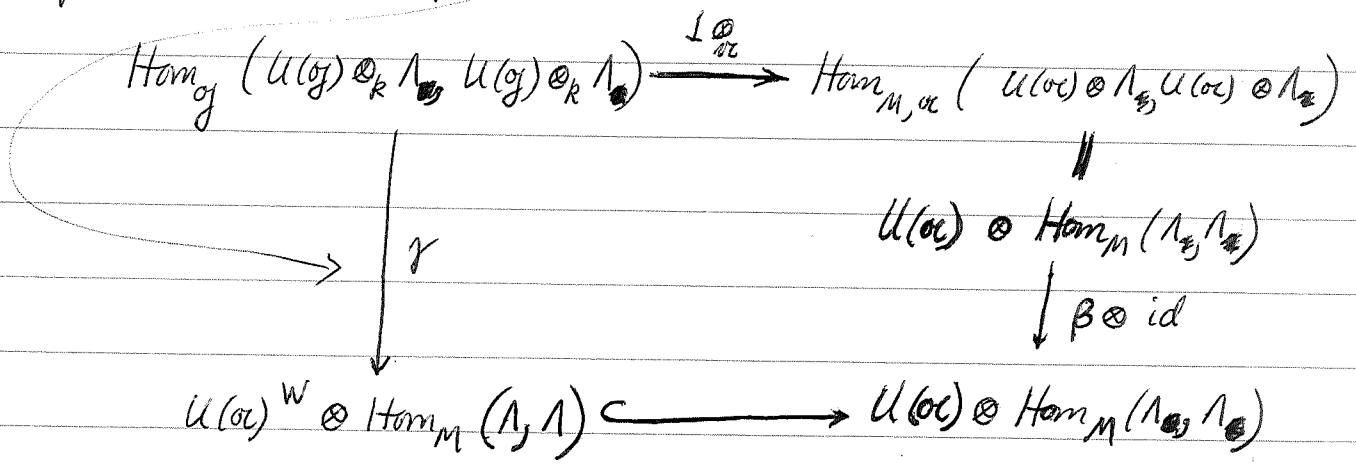 Hom_𝔤 ( U(𝔤) ⊗_k Λ, U(𝔤) ⊗_k Λ ) ⟶ Hom_{M,𝔞} ( U(𝔞) ⊗ Λ, U(𝔞) ⊗ Λ )
1 ⊗_𝔫
∥
U(𝔞) ⊗ Hom_M (Λ, Λ)
γ
β ⊗ id
U(𝔞)^W ⊗ Hom_M (Λ, Λ) ↪ U(𝔞) ⊗ Hom_M (Λ, Λ)